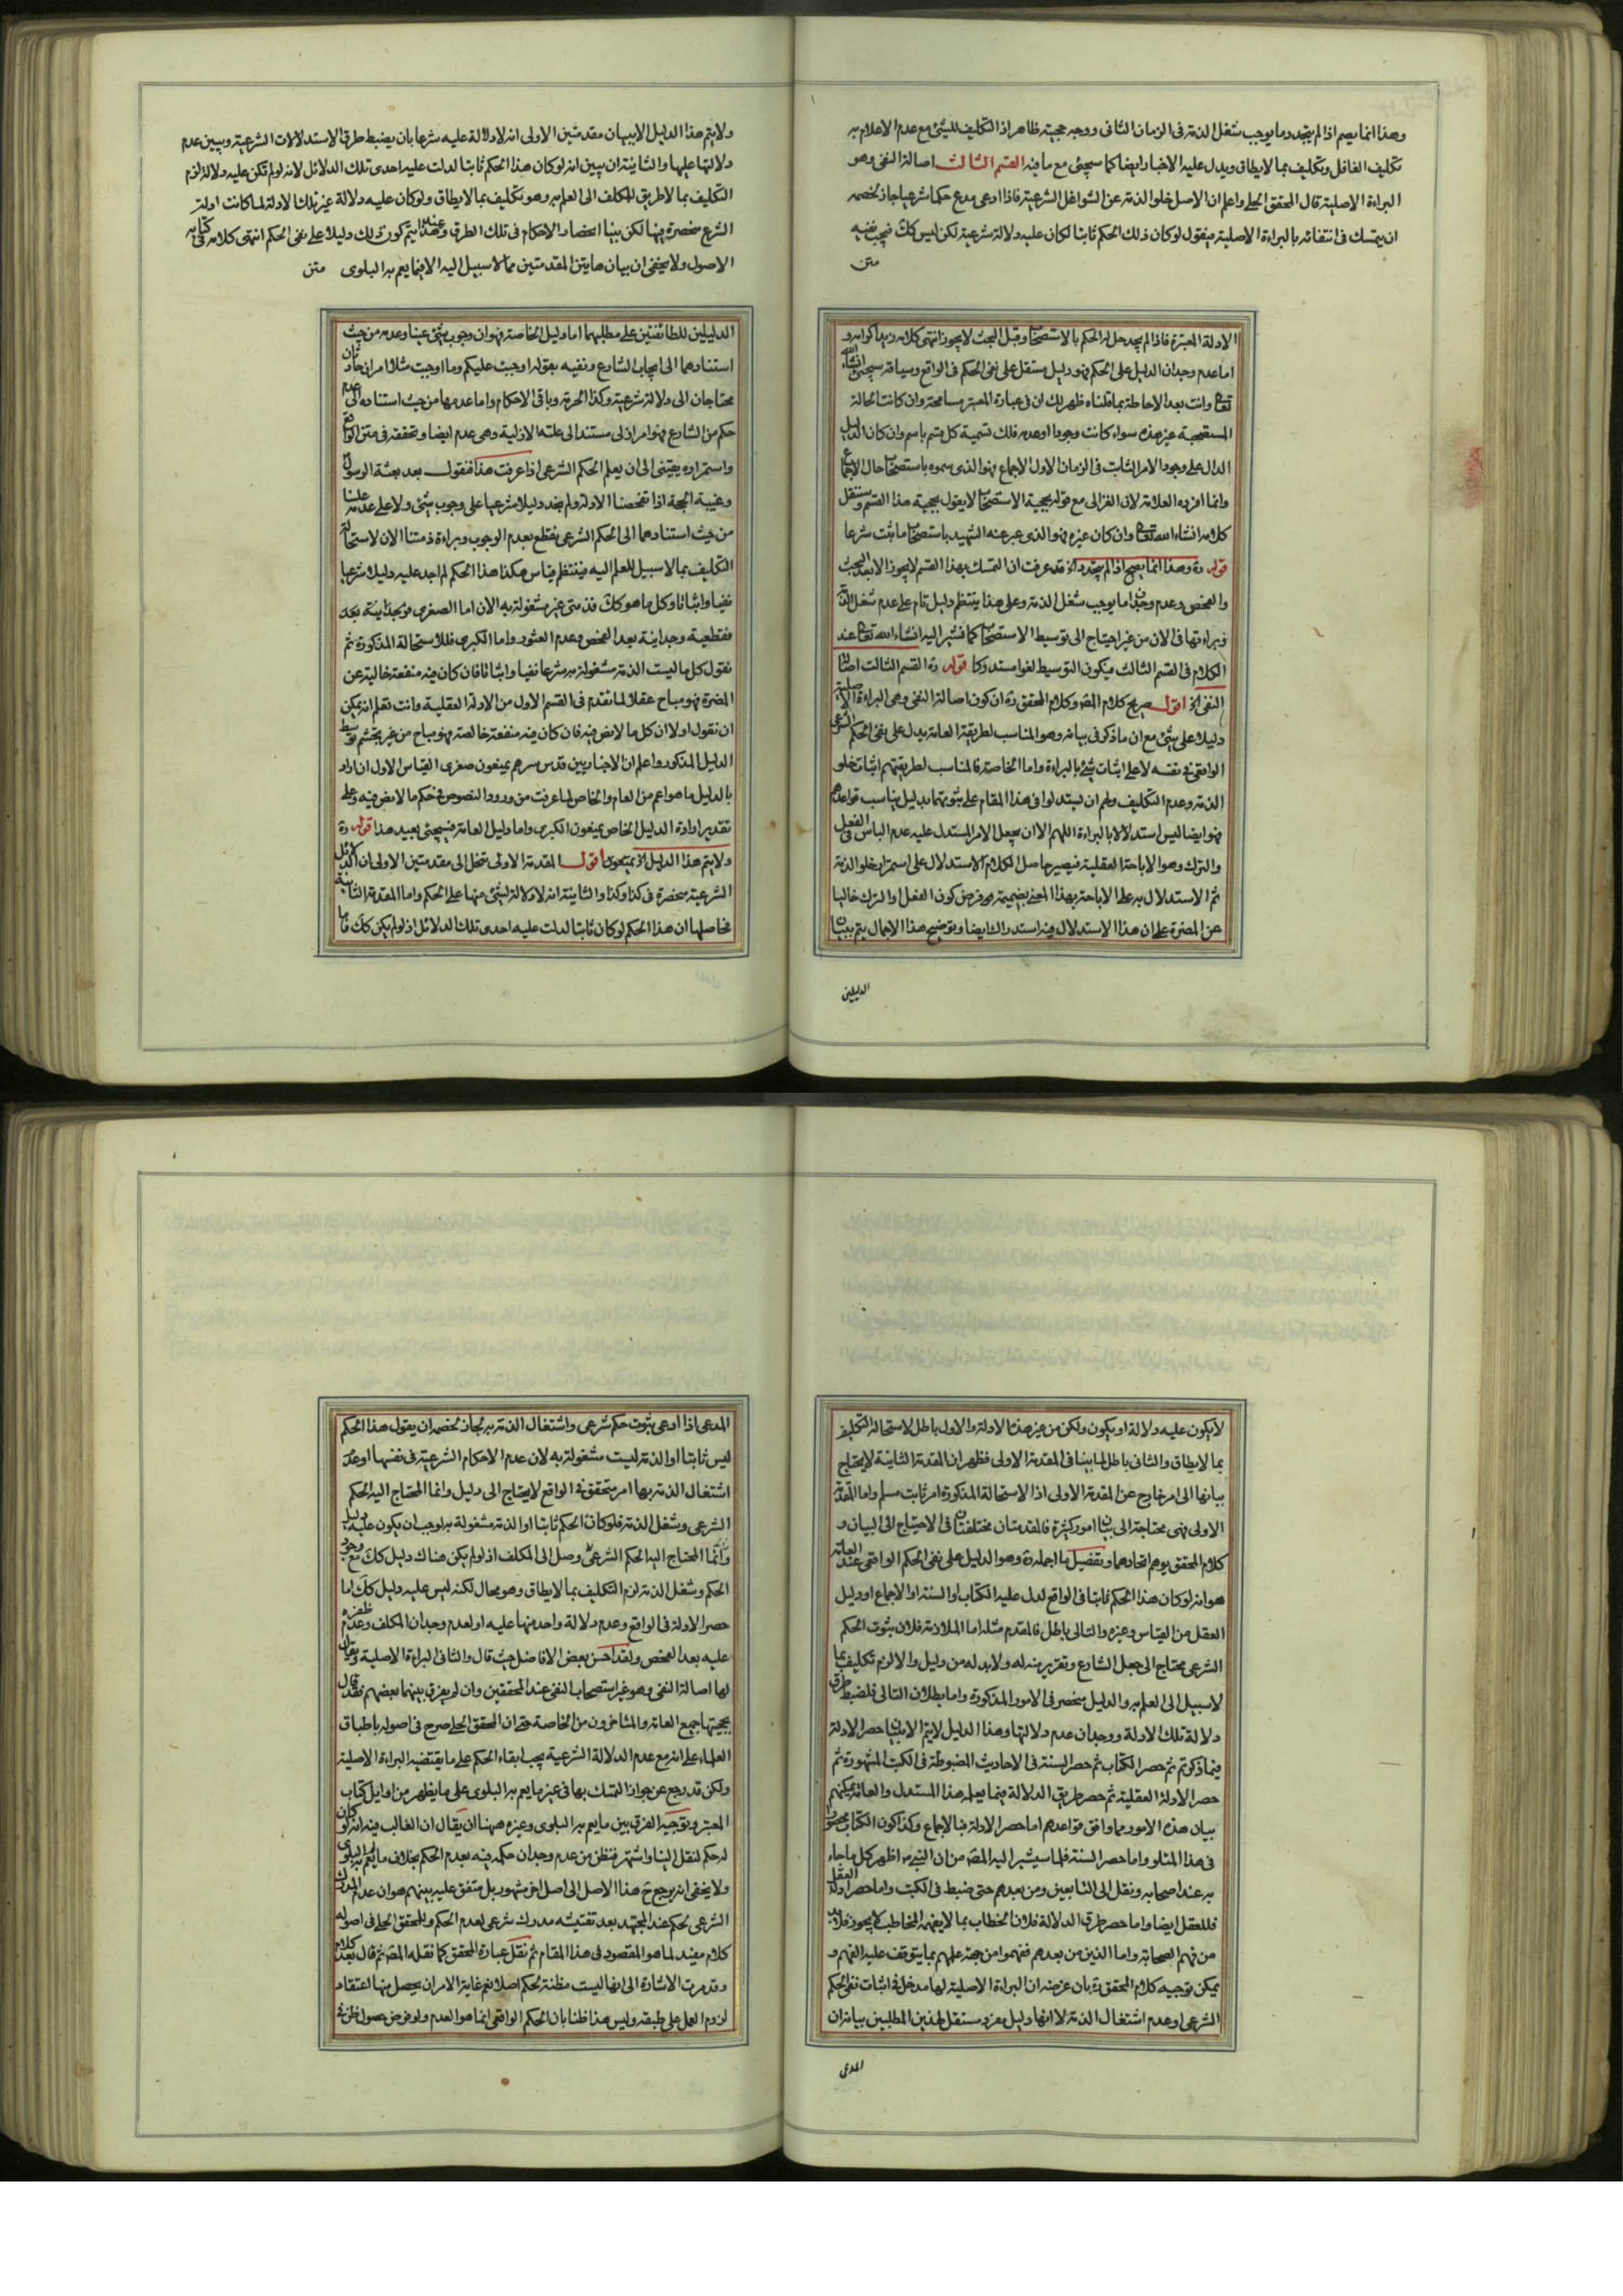 وهذا انما يصح اذا لم يتجدد ما يوجب شغل الذمة فى الزمان الثانى ووجه حجيته ظاهر اذ التكليف للشئ مع عدم الاعلام به
تكليف الغافل وتكليف بما لا يطاق ويدل عليه الاخبار ايضا كما سيجئ مع ما فيه القسم الثالث اصالة النفى وهو
البراءة الاصلية قال المحقق الحلى واعلم ان الاصل خلو الذمة عن الشواغل الشرعية فاذا ادعى مدع حكما شرعيا جاز لخصمه
ان يتمسك فى انتفائه بالبراءة الاصلية فيقول لو كان ذلك الحكم ثابتا لكان عليه دلالة شرعية لكن ليس كك فيجب نفيه
متن
الادلة المعتبرة فاذا لم يجد حل له الحكم بالاستصحاب وقبل البحث لا يجوز انتهى كلامه زيد اكرامه و
اما عدم وجدان الدليل على الحكم فهو دليل مستقل على نفى الحكم فى الواقع وسياقه سيجئ انشاء الله
تعالى وانت بعد الاحاطة بما قلناه ظهر لك ان فى عبارة المعتبر مسامحة وان كانت الحالة
المستصحبة غير هذه سواء كانت وجودا او عدما فلك تسمية كل قسم باسم وان كان الدليل
الدال على وجود الامر الثابت فى الزمان الاول الاجماع فهو الذى سموه باستصحاب حال الاجماع
وانما افرده العلامة لان الغزالى مع قوله بحجية الاستصحاب لا يقول بحجية هذا القسم وسننقل
كلامه انشاء الله تعالى وان كان غيره فهو الذى عبر عنه الشهيد باستصحاب ما ثبت شرعا
قوله ره وهذا انما يصح اذا لم يتجدد اه قد عرفت ان التمسك بهذا القسم لا يجوز الا بعد البحث
والفحص وعدم وجدان ما يوجب شغل الذمة وعلى هذا ينتظم دليل تام على عدم شغل الذمة
وبراءتها فى الان من غير احتياج الى توسيط الاستصحاب كما نشير اليه انشاء الله تعالى عند
الكلام فى القسم الثالث فيكون التوسيط لغوا مستدركا قوله ره القسم الثالث اصالة
النفى الخ اقول صريح كلام المصـ وكلام المحقق ره ان كون اصالة النفى وهى البراءة الاصلية
دليلا على شئ مع ان ما ذكر فى بيانه وهو المناسب لطريقة العامة يدل على نفى الحكم الشرعى
الواقعى فى نفسه لا على اثبات شئ بالبراءة واما الخاصة فالمناسب لطريقتهم اثبات خلو
الذمة وعدم التكليف ولهم ان يستدلوا فى هذا المقام على ثبوتهما بدليل يناسب قواعدهم
فهو ايضا ليس استدلالا بالبراءة اللهم الا ان يجعل الامر المستدل عليه عدم الباس فى الفعل
والترك وهو الاباحة العقلية فيصير حاصل الكلام الاستدلال على استمرار خلو الذمة
ثم الاستدلال به على الاباحة بهذا المعنى بضميمة هو فرض كون الفعل والترك خاليا
عن المضرة على ان هذا الاستدلال فيه استدراك ايضا وتوضيح هذا الاجمال يتم ببيان
الدليلين
ولا يتم هذا الدليل الا ببيان مقدمتين الاولى انه لا دلالة عليه شرعا بان يضبط طرق الاستدلالات الشرعية ويبين عدم
دلالتها عليها والثانية ان يبين انه لو كان هذا الحكم ثابتا لدلت عليه احدى تلك الدلائل لانه لو لم تكن عليه دلالة لزم
التكليف بما لا طريق للمكلف الى العلم به وهو تكليف بما لا يطاق ولو كان عليه دلالة غير تلك الادلة لما كانت ادلة
الشرع منحصرة فيها لكن بينا انحصار الاحكام فى تلك الطرق وعند هذا يتم كون ذلك دليلا على نفى الحكم انتهى كلامه فى كتابه
الاصول ولا يخفى ان بيان هاتين المقدمتين مما لا سبيل اليه الا فيما يعم به البلوى متن
الدليلين للطائفتين على مطلبهما اما دليل الخاصة فهو ان وجوب شئ عينا وعدمه من حيث
استنادهما الى ايجاب الشارع ونفيه بقوله اوجبت عليكم وما اوجبت مثلا امران حادثان
محتاجان الى دلالة شرعية وكذا الحرمة وباقى الاحكام واما عدمها من حيث استناده الى عدم
حكم من الشارع فهو امر ازلى مستند الى علته الازلية وهى عدم ايضا وتحققه فى متن الواقع
واستمراره يقتضى الى ان يعلم الحكم الشرعى اذا عرفت هذا فنقول بعد بعثة الرسول
وغيبة الحجة اذا تفحصنا الادلة ولم نجد دليلا شرعيا على وجوب شئ ولا على عدمه علينا
من حيث استنادهما الى الحكم الشرعى نقطع بعدم الوجوب وبراءة ذمتنا الان لاستحالة
التكليف بما لا سبيل للعلم اليه فينتظم قياس هكذا هذا الحكم لم اجد عليه دليلا شرعيا
نفيا واثباتا وكل ما هو كك فذمتى غير مشغولة به الان اما الصغرى فوجدانية بعد
فقطعية وجدانية بعد الفحص وعدم العثور واما الكبرى فللاستحالة المذكورة ثم
نقول كل ما ليست الذمة مشغولة به شرعا نفيا واثباتا فان كان فيه منفعة خالية عن
المضرة فهو مباح عقلا لما تقدم فى القسم الاول من الادلة العقلية وانت تعلم انه يمكن
ان نقول اولا ان كل ما لا نص فيه فان كان فيه منفعة خالصة فهو مباح من غير تجشم توسط
الدليل المذكور واعلم ان الاخباريين قدس سرهم يمنعون صغرى القياس الاول ان اراد
بالدليل ما هو اعم من العام والخاص لما عرفت من ورود النصوص فى حكم ما لا نص فيه وعلى
تقدير ارادة الدليل الخاص يمنعون الكبرى واما دليل العامة فسيجئ بعيد هذا قوله ره
ولا يتم هذا الدليل الخ اقول المقدمة الاولى تنحل الى مقدمتين الاولى ان الدلائل
الشرعية منحصرة فى كذا وكذا والثانية انه لا دلالة لشئ منها على الحكم واما المقدمة الثانية
فحاصلها ان هذا الحكم لو كان ثابتا لدلت عليه احدى تلك الدلائل اذ لو لم يكن كك فاما
لا يكون عليه دلالة او يكون ولكن من غير هذه الادلة والاول باطل لاستحالة التكليف
بما لا يطاق والثانى باطل لما بينا فى المقدمة الاولى فظهر ان المقدمة الثانية لا يحتاج
بيانها الى امر خارج عن المقدمة الاولى اذ الاستحالة المذكورة امر ثابت مسلم واما المقدمة
الاولى فهى محتاجة الى بيان امور كثيرة فالمقدمتان مختلفتان فى الاحتياج الى البيان و
كلام المحقق يوهم اتحادهما وتفصيل ما اجمله ره وهو الدليل على نفى الحكم الواقعى عند العامة
هو انه لو كان هذا الحكم ثابتا فى الواقع لدل عليه الكتاب او السنة او الاجماع او دليل
العقل من القياس وغيره والتالى باطل فالمقدم مثله اما الملازمة فلان ثبوت الحكم
الشرعى محتاج الى جعل الشارع وتقريره له ولا بد له من دليل والا لزم تكليف بما
لا سبيل الى العلم به والدليل منحصر فى الامور المذكورة واما بطلان التالى فلضبط طرق
دلالة تلك الادلة ووجدان عدم دلالتها وهذا الدليل لا يتم الا ببيان حصر الادلة
فيما ذكر ثم حصر الكتاب ثم حصر السنة فى الاحاديث المضبوطة فى الكتب المشهورة ثم
حصر الادلة العقلية ثم حصر طريق الدلالة فيما يعلمه هذا المستدل والعامة يمكنهم
بيان هذه الامور بما وافق قواعدهم اما حصر الادلة فبالاجماع وكذا كون الكتاب محصورا
فى هذا المتلو واما حصر السنة فلما سيشير اليه المصـ من ان النبى ص اظهر كل ما جاء
به عند اصحابه ونقل الى التابعين ومن بعدهم حتى ضبط فى الكتب واما حصر ادلة العقل
فللعقل ايضا واما حصر طرق الدلالة فلان الخطاب بما لا يفهمه المخاطب لا يجوز فلا بد
من فهم الصحابة واما الذين من بعدهم ففهموا من جهة علمهم بما يتوقف عليه الفهم و
يمكن توجيه كلام المحقق ره بان غرضه ان البراءة الاصلية لها مدخل فى اثبات نفى الحكم
الشرعى او عدم اشتغال الذمة لا انها دليل مفرد مستقل لهذين المطلبين بيانه ان
المدعى
المدعى اذا ادعى ثبوت حكم شرعى واشتغال الذمة به جاز لخصمه ان يقول هذا الحكم
ليس ثابتا او الذمة ليست مشغولة به لان عدم الاحكام الشرعية فى نفسها او عدم
اشتغال الذمة بها امر متحقق فى الواقع لا يحتاج الى دليل وانما المحتاج اليه الحكم
الشرعى وشغل الذمة فلو كان الحكم ثابتا او الذمة مشغولة به لوجب ان يكون عليه دليل
وانما المحتاج اليه الحكم الشرعى وصل الى المكلف اذ لو لم يكن هناك دليل كك مع وجود
الحكم وشغل الذمة لزم التكليف بما لا يطاق وهو محال لكنه ليس عليه دليل كك اما
حصر الادلة فى الواقع وعدم دلالة واحد منها عليه او لعدم وجدان المكلف وعدم ظفره
عليه بعد الفحص ولقد احسن بعض الافاضل حيث قال والثانى البراءة الاصلية ويقال
لها اصالة النفى وهو غير استصحاب النفى عند المحققين وان لم يفرق بينهما بعضهم فقد قال
بحجيتها جميع العامة والمتاخرون من الخاصة حتى ان المحقق الحلى صرح فى اصوله باطباق
العلماء على انه مع عدم الدلالة الشرعية يجب ابقاء الحكم على ما يقتضيه البراءة الاصلية
ولكن قد رجع عن جواز التمسك بها فى غير ما يعم به البلوى على ما يظهر من اوايل كتاب
المعتبر وتوجيه الفرق بين ما يعم به البلوى وغيره ههنا ان يقال ان الغالب فيه انه لو كان
له حكم لنقل الينا واشتهر فنظن من عدم وجدان حكمه فيه بعدم الحكم بخلاف ما لا يعم به البلوى
ولا يخفى انه يرجع ح هذا الاصل الى اصل اخر مشهور بل متفق عليه بينهم هو ان عدم المدرك
الشرعى لحكم عند المجتهد بعد تفتيشه مدرك شرعى لعدم الحكم وللمحقق الحلى فى اصوله
كلام مفيد لما هو المقصود فى هذا المقام ثم نقل عبارة المحقق كما نقله المصـ ثم قال بعد كلام
وقد مرت الاشارة الى انها ليست مظنة لحكم اصلا نعم غاية الامر ان يحصل منها اعتقاد
لزوم العمل على طبقه وليس هذا ظنا بان الحكم الواقعى انما هو العدم ولو فرض حصول ظن فى